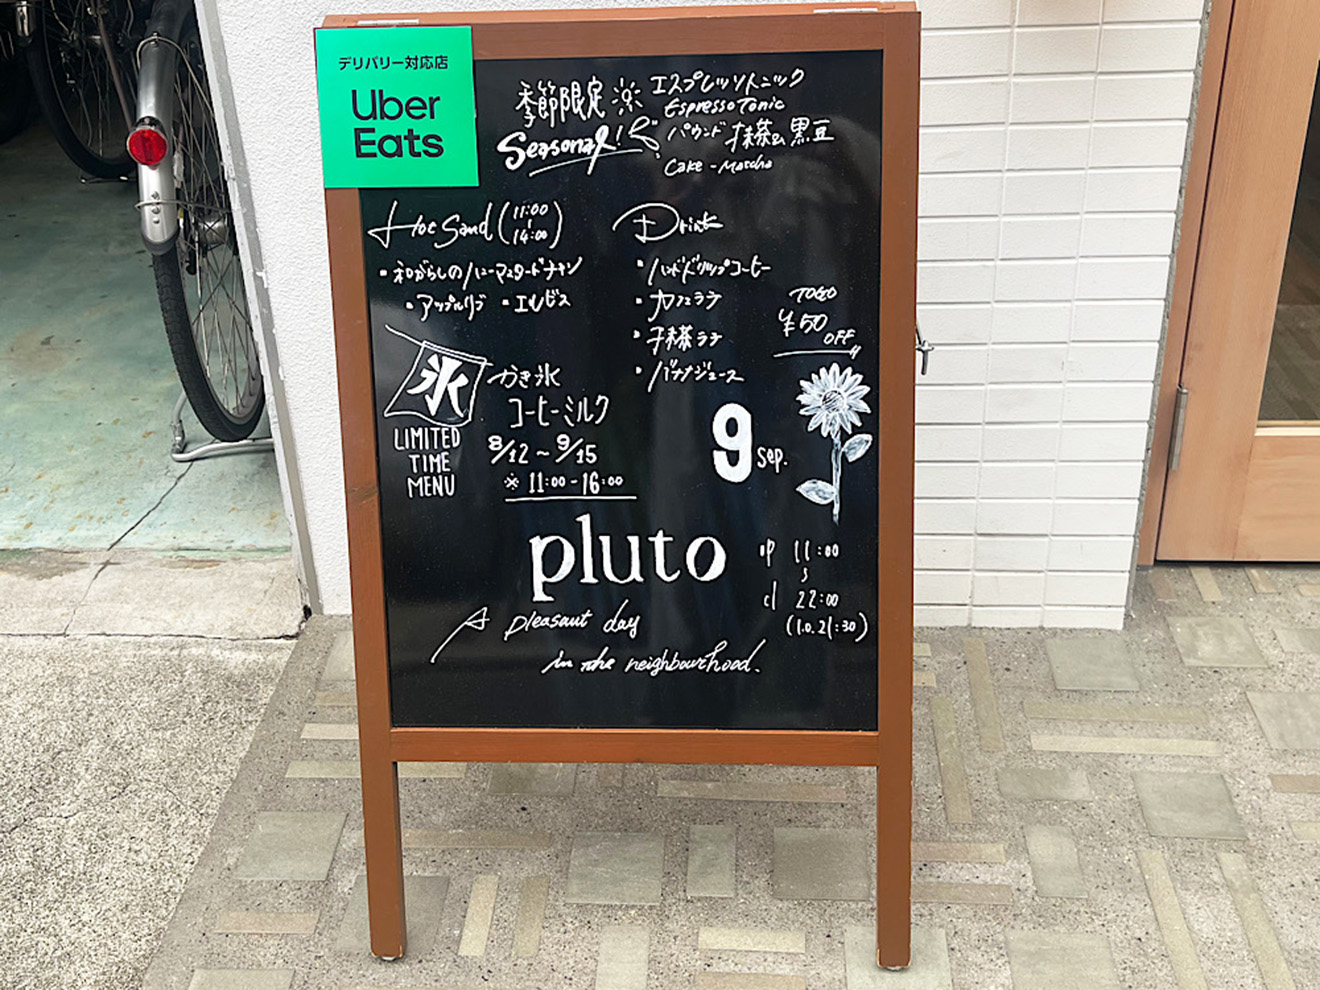 デリバリー対応店
Uber
Eats
季節限定
Seasonal!
エスプレッソトニック
Espresso Tonic
パウンド 抹茶&黒豆
Cake - Matcha
Hot Sand (11:00
14:00)
・和がらしのハニーマスタードチキン
・アップルリブ ・エルビス
Drink
・ハンドドリップコーヒー
・カフェラテ
・抹茶ラテ
・バナナジュース
TOGO
¥50
OFF
氷
LIMITED
TIME
MENU
かき氷
コーヒーミルク
8/12~9/15
※ 11:00-16:00
9 sep.
pluto
op 11:00
cl 22:00
(l.o. 21:30)
A pleasant day
in the neighbourhood.